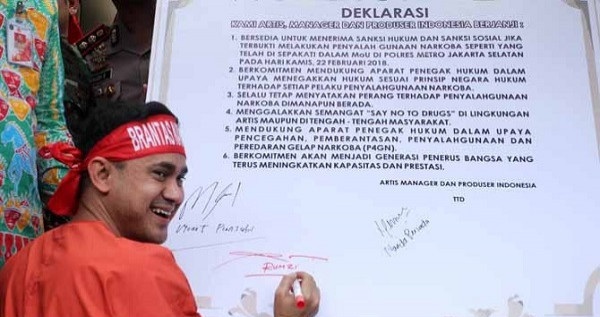 DEKLARASI
KAMI ARTIS, MANAGER DAN PRODUSER INDONESIA BERJANJI :
1. BERSEDIA UNTUK MENERIMA SANKSI HUKUM DAN SANKSI SOSIAL JIKA
TERBUKTI MELAKUKAN PENYALAH GUNAAN NARKOBA SEPERTI YANG
TELAH DI SEPAKATI DALAM MoU DI POLRES METRO JAKARTA SELATAN
PADA HARI KAMIS, 22 FEBRUARI 2018.
2. BERKOMITMEN MENDUKUNG APARAT PENEGAK HUKUM DALAM
UPAYA MENEGAKKAN HUKUM SESUAI PRINSIP NEGARA HUKUM
TERHADAP SETIAP PELAKU PENYALAHGUNAAN NARKOBA.
3. SELALU TETAP MENYATAKAN PERANG TERHADAP PENYALAHGUNAAN
NARKOBA DIMANAPUN BERADA.
4. MENGGALAKKAN SEMANGAT "SAY NO TO DRUGS" DI LINGKUNGAN
ARTIS MAUPUN DI TENGAH - TENGAH MASYARAKAT.
5. MENDUKUNG APARAT PENEGAK HUKUM DALAM UPAYA
PENCEGAHAN, PEMBERANTASAN, PENYALAHGUNAAN DAN
PEREDARAN GELAP NARKOBA (P4GN).
6. BERKOMITMEN AKAN MENJADI GENERASI PENERUS BANGSA YANG
TERUS MENINGKATKAN KAPASITAS DAN PRESTASI.
ARTIS MANAGER DAN PRODUSER INDONESIA
TTD
BRANTAS
RUMZI